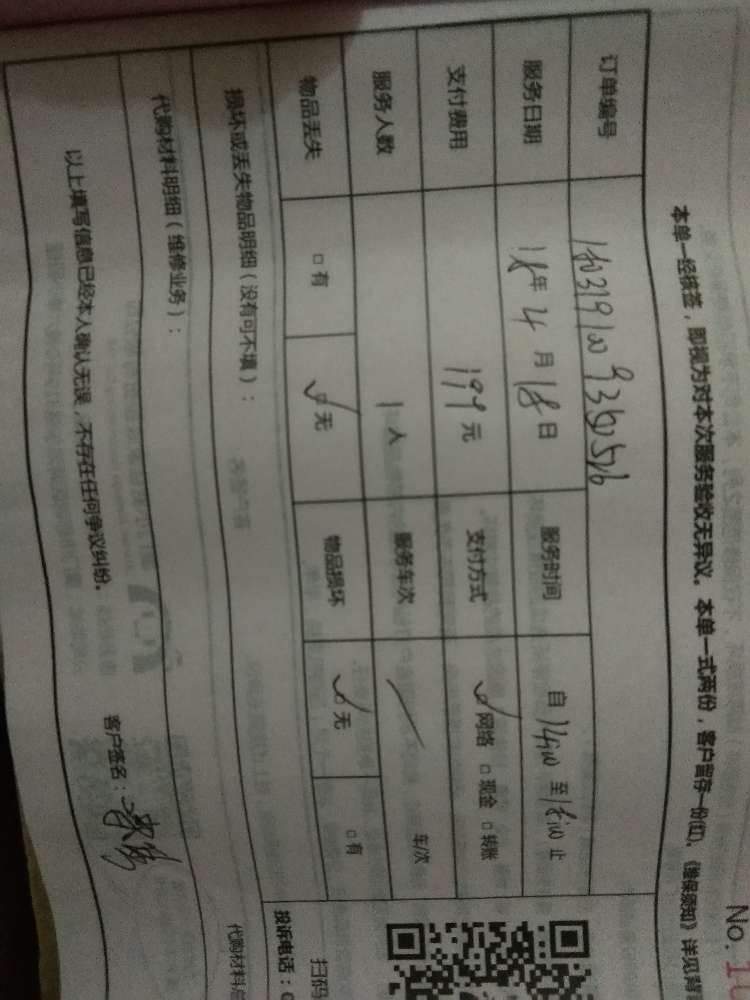 No.
本单一经核签，即视为对本次服务验收无异议。本单一式两份，客户留存一份(红)。《维保须知》详见背
订单编号
服务日期 18年4月18日 服务时间 自 至 止
支付费用 199元 支付方式 ☑网络 □现金 □转账
服务人数 1人 服务车次 / 车/次
物品丢失 □有 ☑无 物品损坏 ☑无 □有
损坏或丢失物品明细（没有可不填）：
代购材料明细（维修业务）：
代购材料总
以上填写信息已经本人确认无误，不存在任何争议纠纷。
客户签名：
扫码
投诉电话：